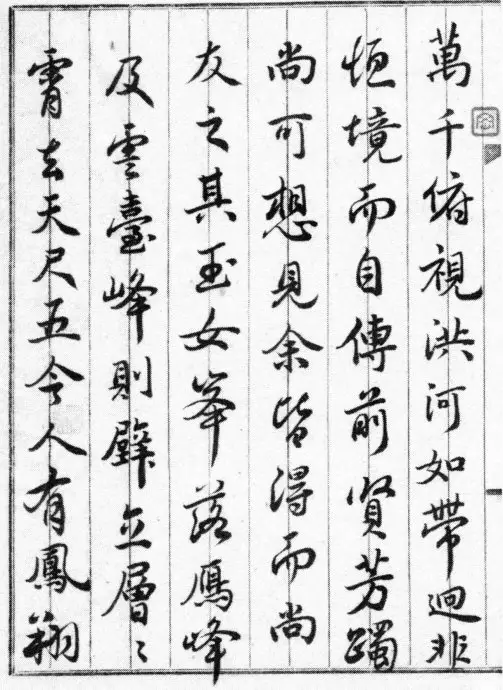 萬千俯視洪河如帶迥非
恒境而自傳前賢芳躅
尚可想見余皆得而尚
友之其玉女峯落鴈峰
及雲臺峰則壁立層〻
霄去天尺五令人有鳳翔